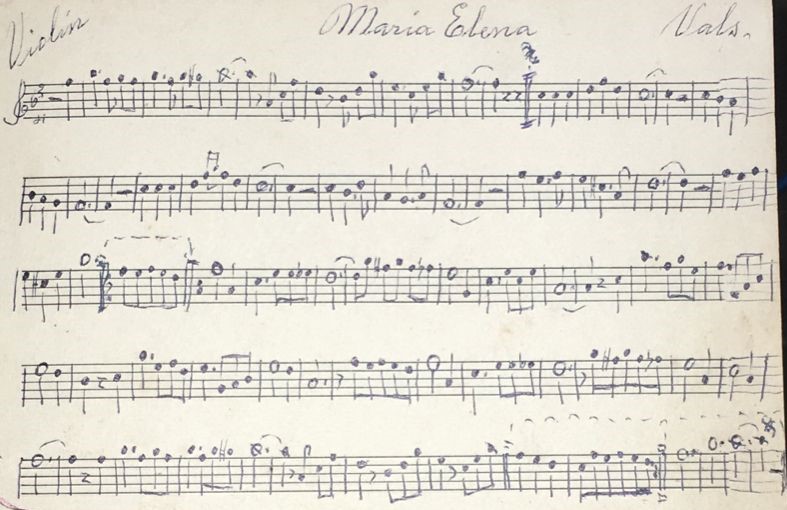 Violín María Elena Vals.